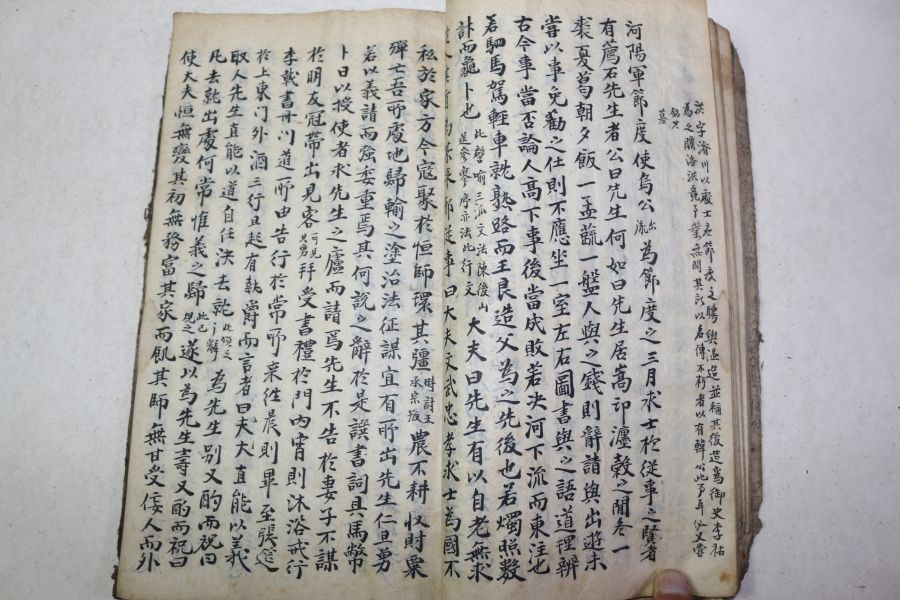 洪字濬川以處士應節度之聘與溫造並稱其後造爲御史李祐
爲之膽落洪竟事業無聞其所以名傳不朽者以有韓公此序耳公又嘗
銘其
墓
河陽軍節度使烏公重胤爲節度之三月求士於從事之賢者
有薦石先生者公曰先生何如曰先生居嵩邙瀍穀之間冬一
裘夏葛朝夕飯一盂蔬一盤人與之錢則辭請與出遊未
嘗以事免勸之仕則不應坐一室左右圖書與之語道理辨
古今事當否論人高下事後當成敗若決河下流而東注也
若駟馬駕輕車就熟路而王良造父爲之先後也若燭照數
計而龜卜也此譬喻三派文法陳後山送參寥序亦法此行文大夫曰先生有以自老無求
於人其肯爲某來邪從事曰大夫文武忠孝求士爲國不
私於家方今寇聚於恒師環其疆時討王承宗叛農不耕收財粟
殫亡吾所處地歸輸之塗治法征謀宜有所出先生仁且勇
若以義請而强委重焉其何說之辭於是譔書詞具馬幣
卜日以授使者求先生之廬而請焉先生不告於妻子不謀
於朋友冠帶出見客可見其勇拜受書禮於門內宵則沐浴戒行
李載書冊問道所由告行於常所來往晨則畢至張筵
於上東門外酒三行且起有執爵而言者曰大夫眞能以義
取人先生眞能以道自任決去就爲先生別又酌而祝曰
凡去就出處何常惟義之歸此已規之遂以爲先生壽又酌而祝曰
使大夫恒無變其初無務富其家而飢其師無甘受佞人而外